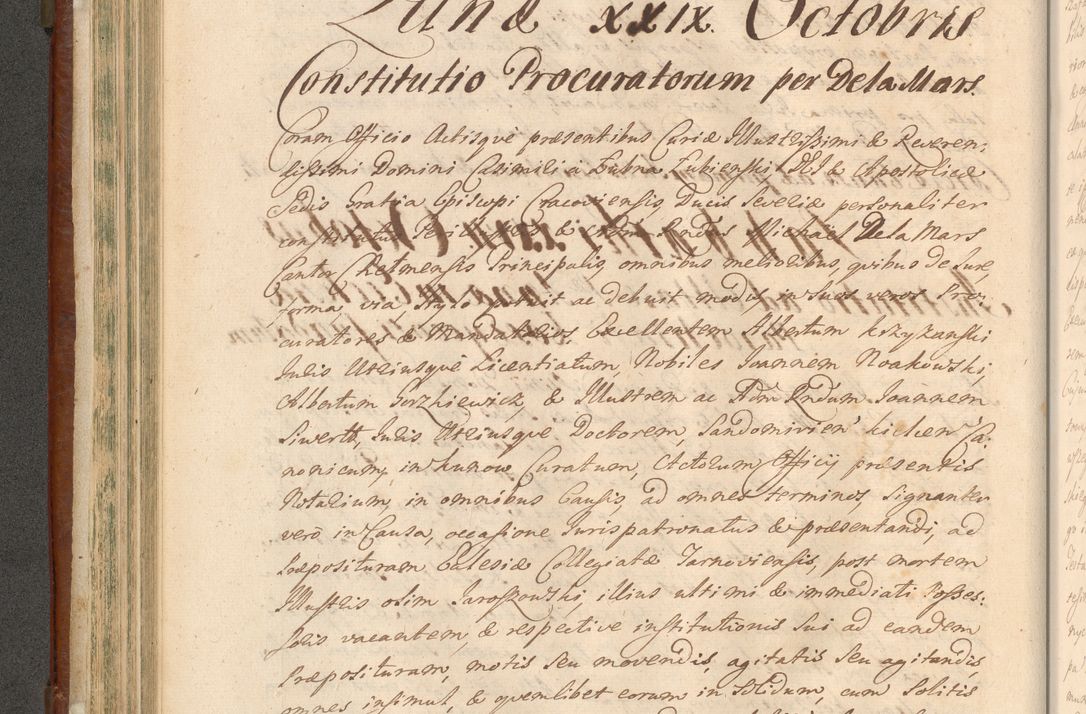 Lunæ XXIX. Octobris
Constitutio Procuratorum per De la Mars.
Coram Officio Actisque præsentibus Curiæ Illustrissimi & Reveren:
dissimi Domini Casimiri a Łubna Łubienski DEI & Apostolicæ
Sedis Gratia Episcopi Cracoviensis, Ducis Severiæ personaliter
Michael De la Mars
Cantor Principalis, omnibus melioribus, quibus de Jure,
forma, via, stylo potuit ac debuit modis, in suos veros Pro:
curatores & Mandatarios, Excellentem Albertum Krzyżanski
Juris Utriusque Licentiatum, Nobiles Joannem Noakowski,
Albertum & Illustrem ac Adm Rndum Joannem
Siwertt, Juris Utriusque Doctorem, Sandomirien Kielcen Ca:
nonicum, in Kunow Curatum, Actorum Officij præsentis
Notarium, in omnibus Causis, ad omnes terminos, signanter
vero in Causa, occasione Jurispatronatus & præsentandi, ad
Præposituram Eclesiæ Collegiatæ Tarnoviensis, post mortem
Illustris olim Jaroszowski, illius ultimi & immediati Posses:
soris vacantem, & respective institutionis sui ad eandem
Præposituram, motis seu movendis, agitatis seu agitandis,
omnes insimul, & quemlibet eorum in solidum, cum solitis